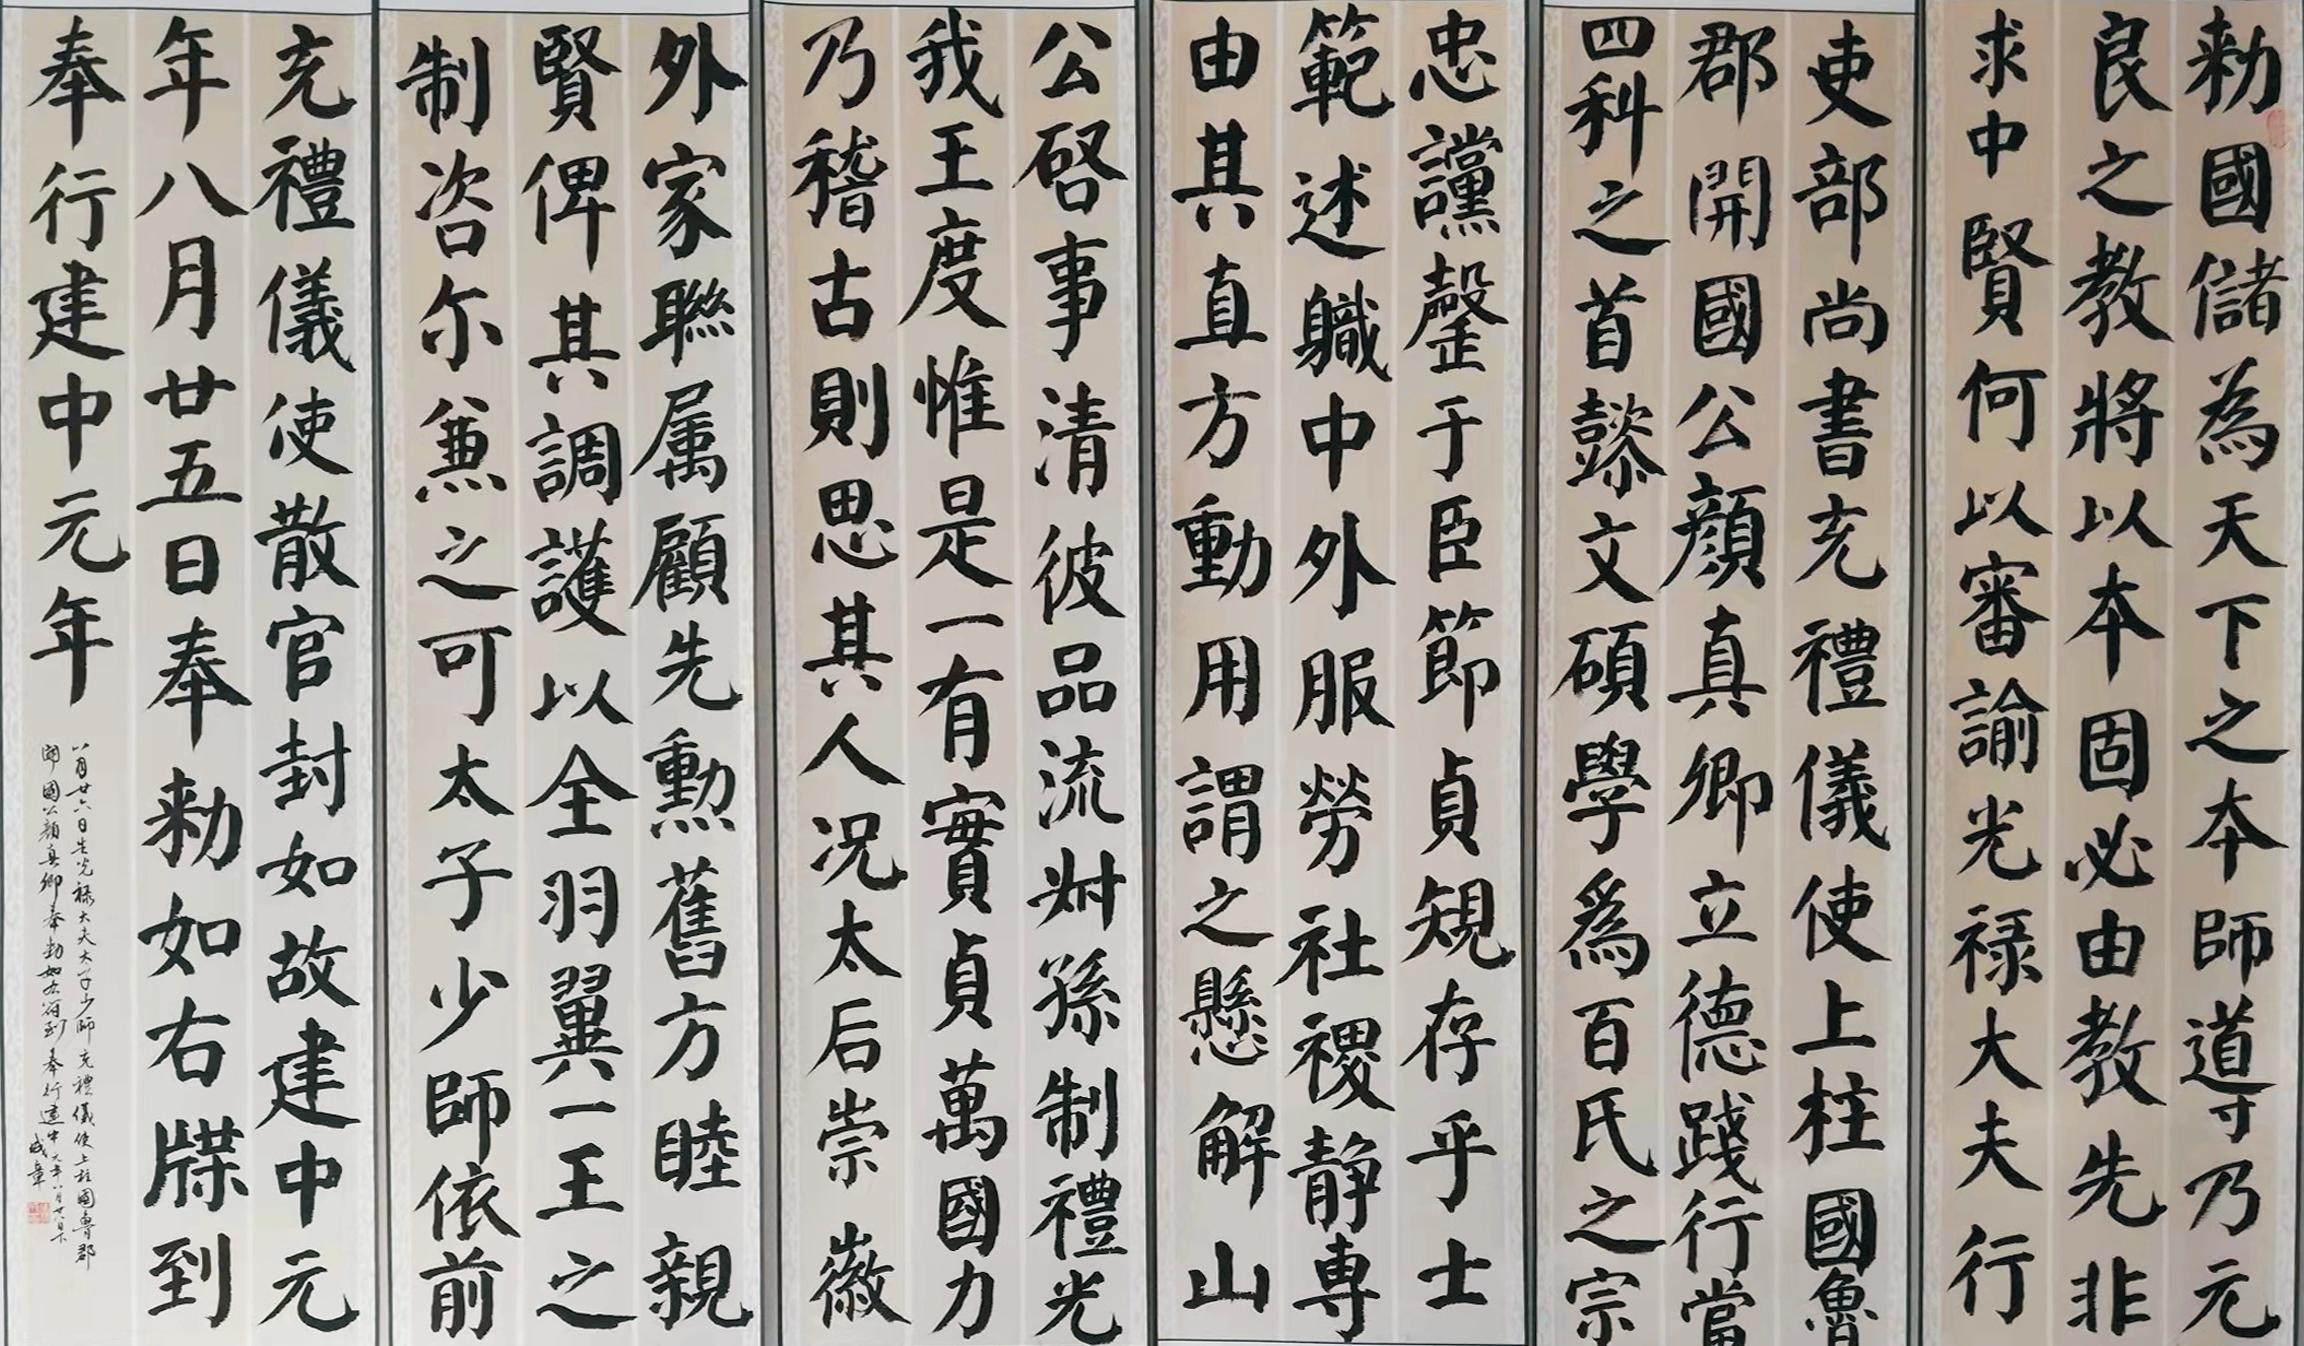 勑國儲為天下之本師導乃元
良之教將以本固必由教先非
求中賢何以審諭光禄大夫行
吏部尚書充禮儀使上柱國魯
郡開國公顏真卿立德踐行當
四科之首懿文碩學爲百氏之宗
忠讜罄于臣節貞規存乎士
範述職中外服勞社稷静專
由其直方動用謂之懸解山
公啓事清彼品流叔孫制禮光
我王度惟是一有實貞萬國力
乃稽古則思其人况太后崇徽
外家聯属顧先勳舊方睦親
賢俾其調護以全羽翼一王之
制咨尔兼之可太子少師依前
充禮儀使散官封如故建中元
年八月廿五日奉勑如右牒到
奉行建中元年
八月廿六日 光禄大夫太子少師充禮儀使上柱國魯郡
開國公顏真卿奉勑如右符到奉行建中元年八月廿八日下
成章